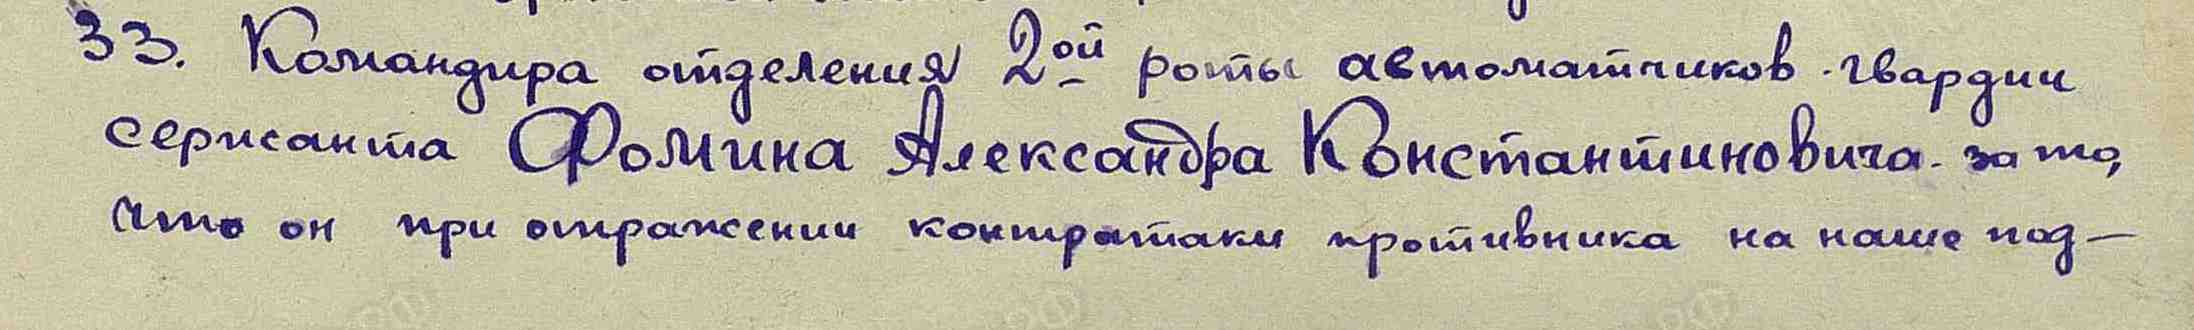 33. Командира отделения 2ой роты автоматчиков гвардии
сержанта Фомина Александра Константиновича за то,
что он при отражении контратаки противника на наше под-